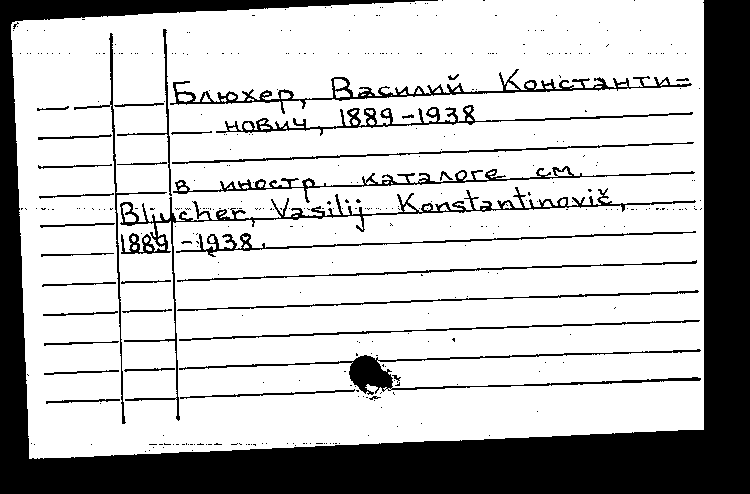 Блюхер, Василий Константи=
нович, 1889-1938
в иностр. каталоге см.
Bljucher, Vasilij Konstantinovič,
1889-1938.